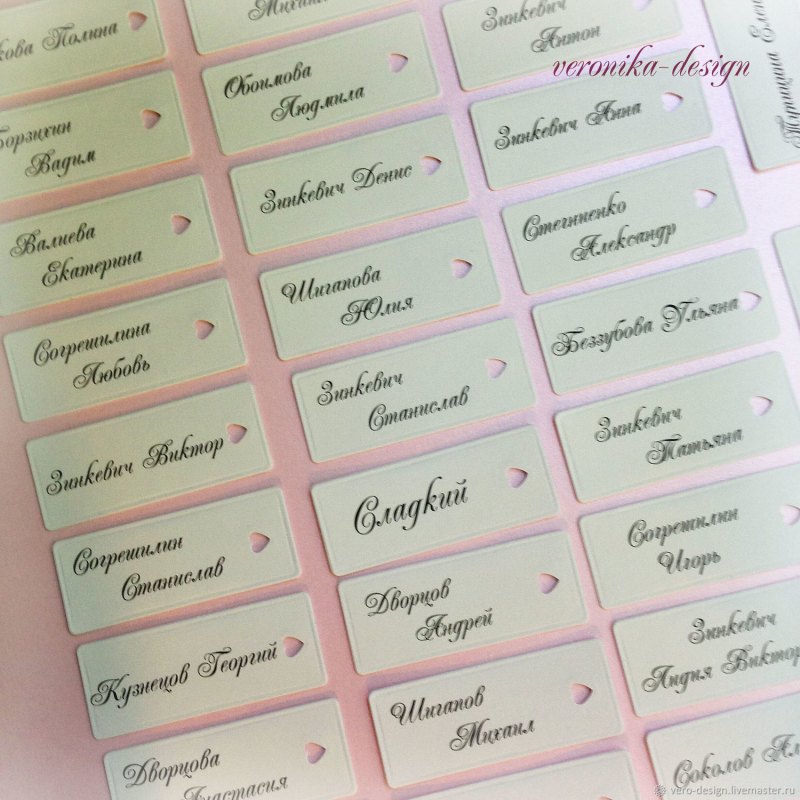 Полина
Борзихин
Вадим
Валиева
Екатерина
Согрешилина
Любовь
Зинкевич Виктор
Согрешилин
Станислав
Кузнецов Георгий
Дворцова
Анастасия
Обоимова
Людмила
Зинкевич Денис
Шигапова
Юлия
Зинкевич
Станислав
Сладкий
Дворцов
Андрей
Шигапов
Михаил
Зинкевич
Антон
veronika-design
Зинкевич Анна
Стегниенко
Александр
Беззубова Ульяна
Зинкевич
Татьяна
Согрешилин
Игорь
Зинкевич
Соколов
vero-design.livemaster.ru